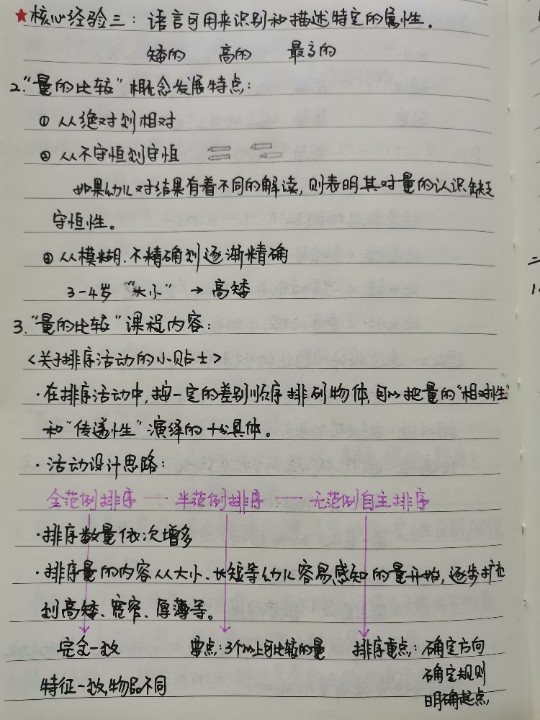 ★核心经验三：语言可用来识别和描述特定的属性。
矮的 高的 最高的
2."量的比较"概念发展特点：
① 从绝对到相对
② 从不守恒到守恒
如果幼儿对结果有着不同的解读，则表明其对量的认识缺乏
守恒性。
③ 从模糊、不精确到逐渐精确
3-4岁 "大小" → 高矮
3."量的比较"课程内容：
<关于排序活动的小贴士>
·在排序活动中，按一定的差别顺序排列物体，可以把量的"相对性"
和"传递性"演绎的十分具体。
·活动设计思路：
全范例排序 — 半范例排序 — 无范例自主排序
·排序数量依次增多
·排序量的内容从大小、长短等幼儿容易感知的量开始，逐步扩大
到高矮、宽窄、厚薄等。
完全一致 要点：3个以上可比较的量 排序重点：确定方向
确定规则
特征一致，物品不同 明确起点